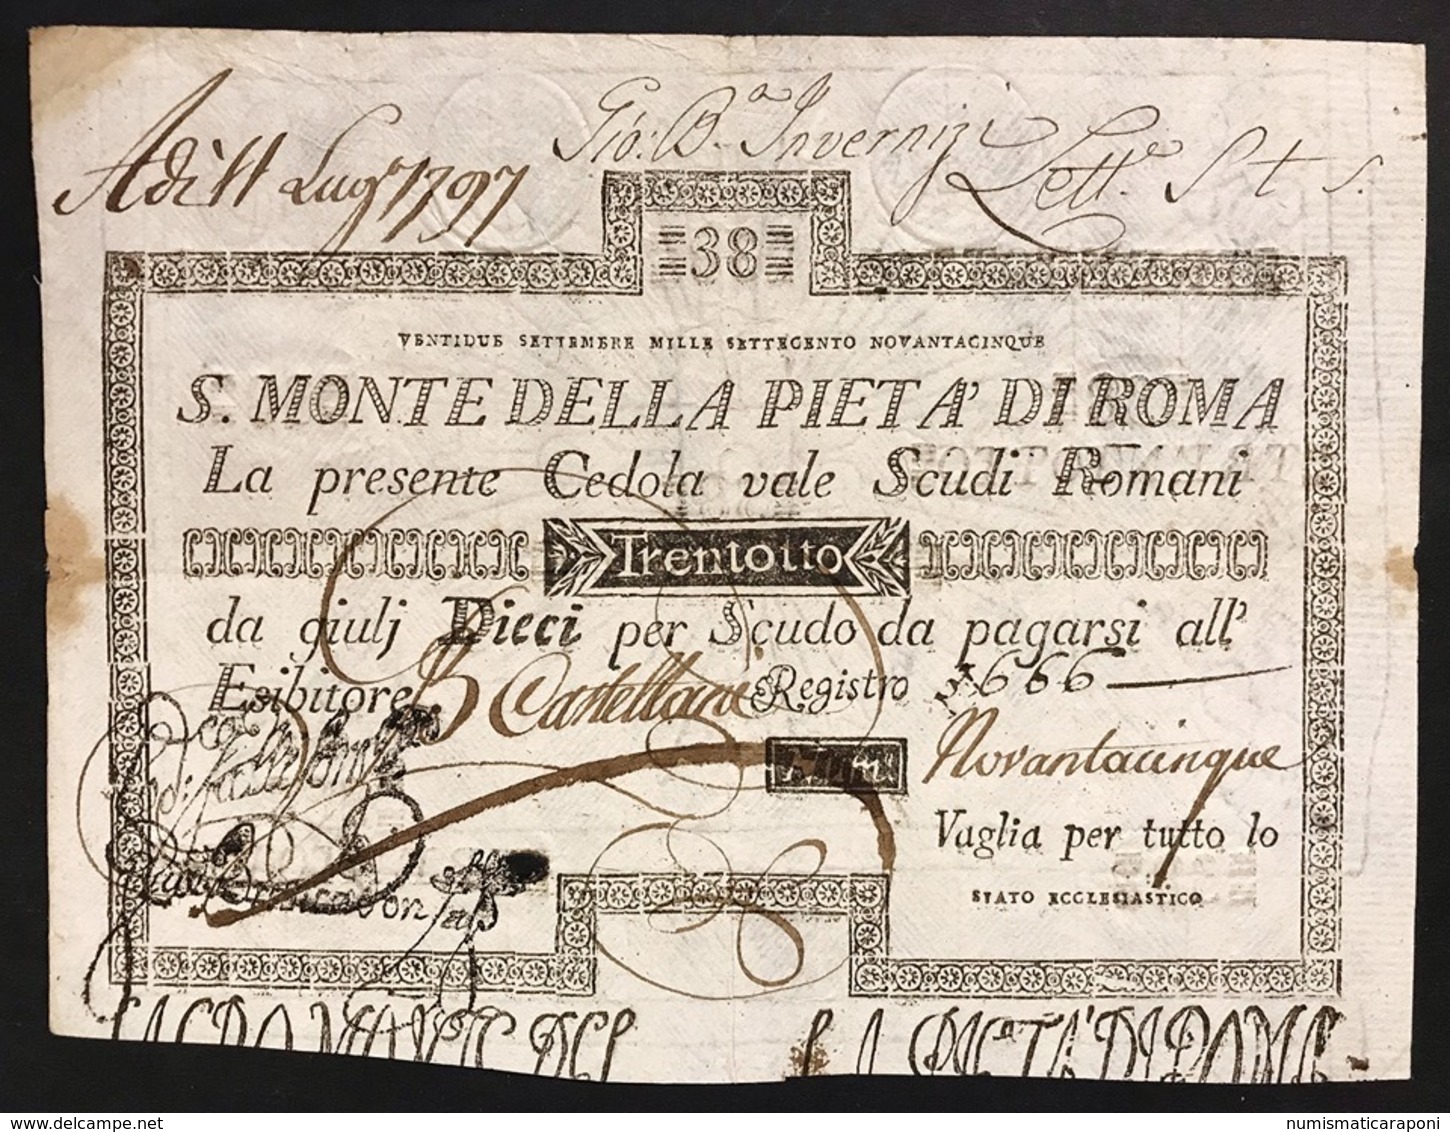 Gio: Bª Invernizi Lett.e S t s.
Adì 11 Lug° 1797
38
VENTIDUE SETTEMBRE MILLE SETTECENTO NOVANTACINQUE
S. MONTE DELLA PIETA' DI ROMA
La presente Cedola vale Scudi Romani
Trentotto
da giulj Dieci per Scudo da pagarsi all'
Esibitore B Castellani Registro N 1666
Novantacinque
Vaglia per tutto lo
STATO ECCLESIASTICO
LA PIETÀ DI ROMA
numismaticaraponi